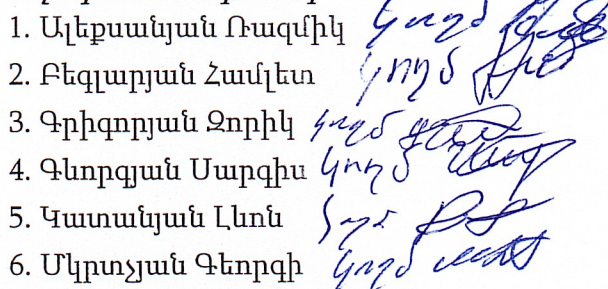 1. Ալեքսանյան Ռազմիկ կողմ
2. Բեգլարյան Համլետ կողմ
3. Գրիգորյան Զորիկ կողմ
4. Գևորգյան Սարգիս կողմ
5. Կատանյան Լևոն կողմ
6. Մկրտչյան Գեորգի կողմ